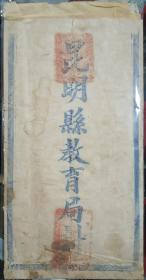 昆明縣教育局